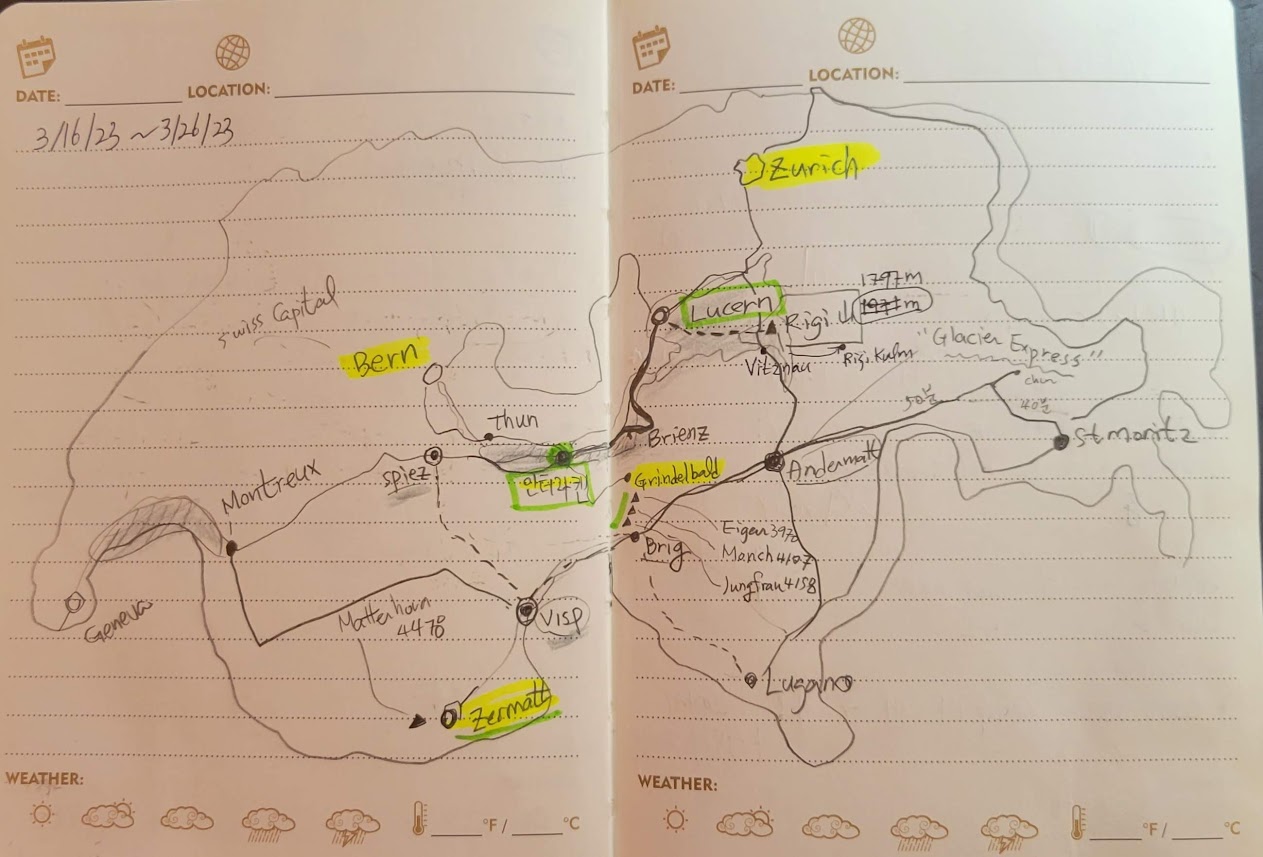 DATE:
LOCATION:
3/16/23 ~ 3/26/23
Swiss Capital
Bern
Thun
Montreux
Spiez
인터라켄
Geneva
Matterhorn
4478
Visp
Zermatt
WEATHER:
°F / °C
DATE:
LOCATION:
Zurich
1797m
Lucern
Rigi 山
Vitznau
Rigi Kulm
"Glacier Express"
chur
50분
40분
Brienz
St moritz
Andermatt
Grindelbald
Eiger 3970
Manch 4107
Jungfrau 4158
Brig
Lugano
WEATHER:
°F / °C